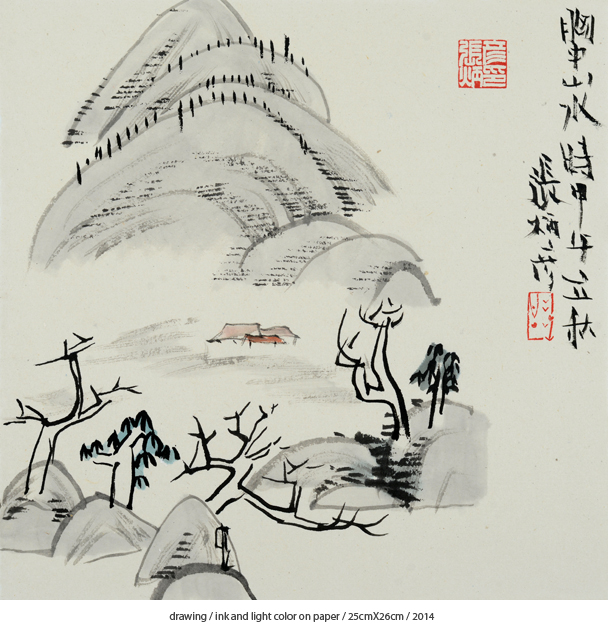 胸中山水 時甲午立秋
張炳
drawing / ink and light color on paper / 25cmX26cm / 2014